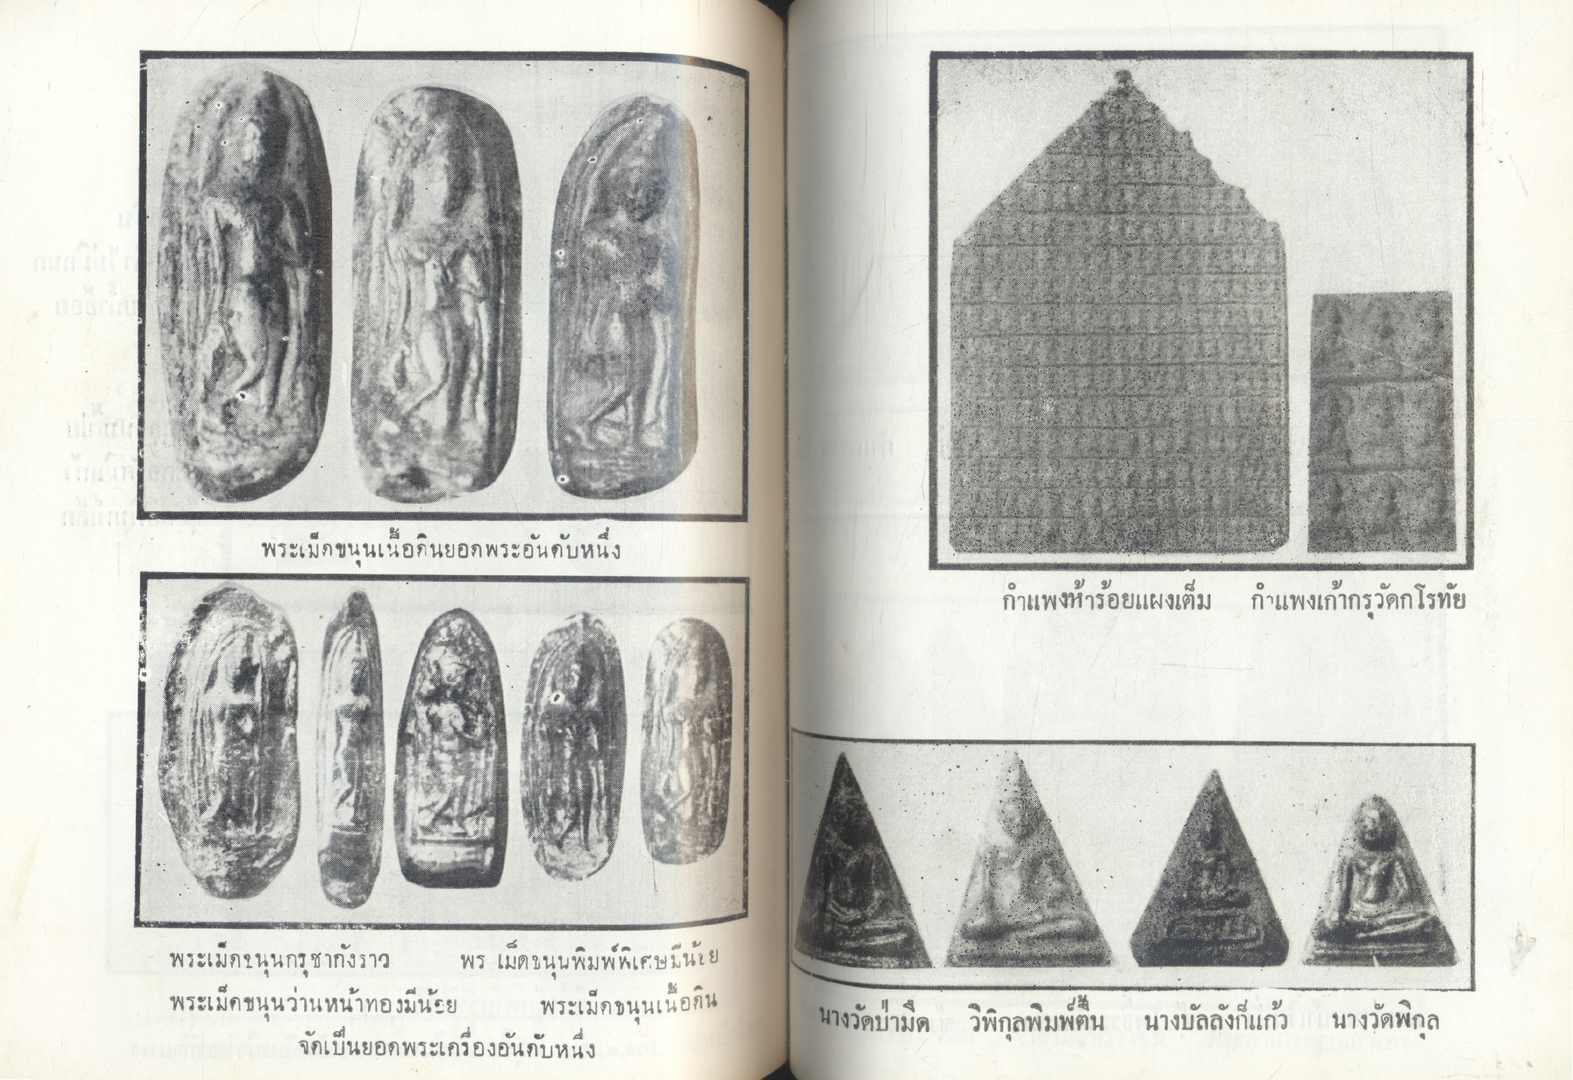 พระเม็ดขนุนเนื้อดินยอดพระอันดับหนึ่ง
พระเม็ดขนุนกรุซากังราว พร เม็ดขนุนพิมพ์พิเศษมีน้อย
พระเม็ดขนุนว่านหน้าทองมีน้อย พระเม็ดขนุนเนื้อดิน
จัดเป็นยอดพระเครื่องอันดับหนึ่ง
กำแพงห้าร้อยแผงเต็ม กำแพงเก้ากรุวัดกโรทัย
นางวัดป่ามืด วิพิกุลพิมพ์ตื้น นางบัลลังก็แก้ว นางวัดพิกุล